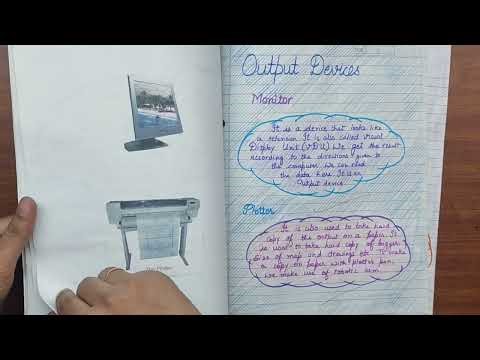 The Plotter
Output Devices
Monitor
It is a device that looks like
a television It is also called visual
Display Unit (VDU) We get the result
according to the directions given to
the computer We can read
the data here. It is an
Output device
Plotter
It is also used to take hard
copy of the output on a paper. It
is used to take hard copy of bigger
size of map and drawings etc. It make
a copy on paper with plotter pen,
we make use of robotic arm.